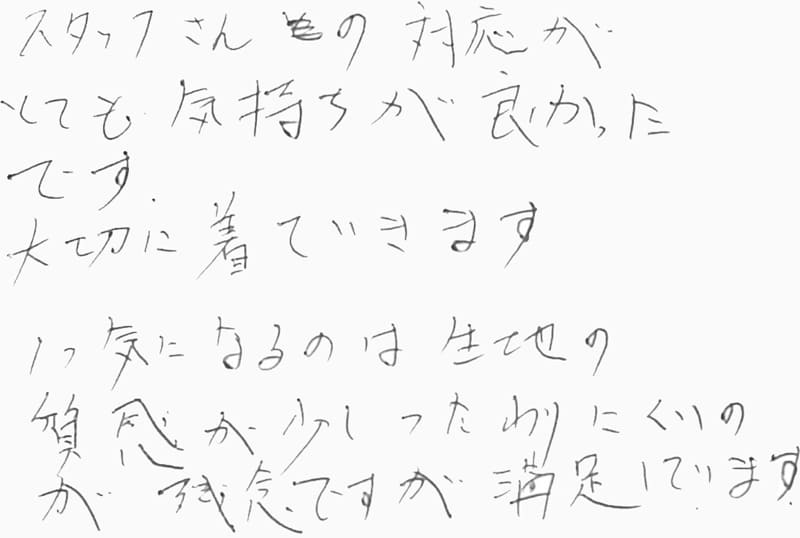 スタッフさんの対応が
とても気持ちが良かった
です.
大切に着ていきます
1つ気になるのは生地の
質感が少しつたわりにくいの
が残念ですが満足しています.